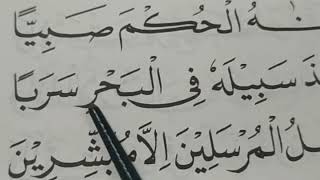 ـنٰهُ الْحُكْمَ صَبِيًّا
ـذَ سَبِيلَهُ فِي الْبَحْرِ سَرَبًا
ـلُ الْمُرْسَلِينَ اِلَّا مُبَشِّرِينَ